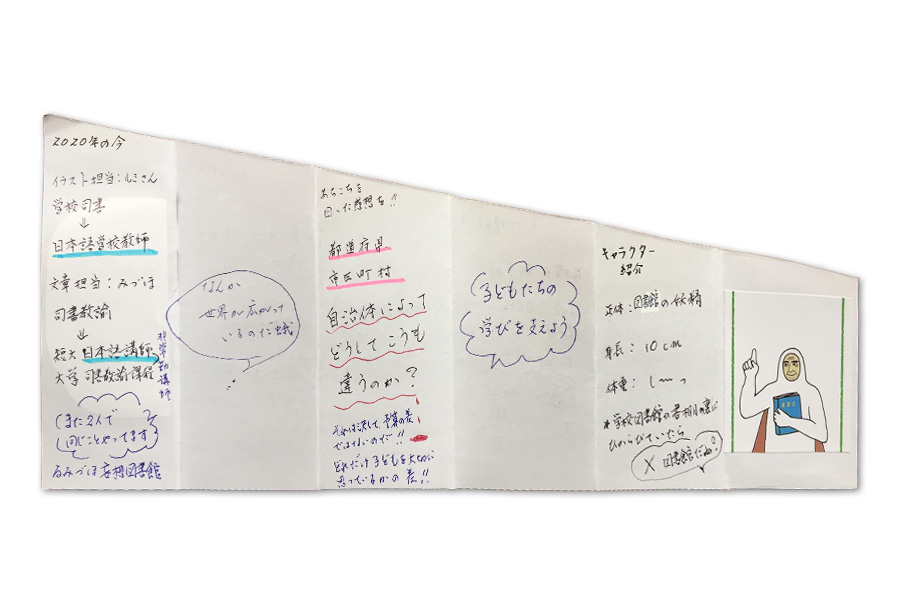 2020年の今
イラスト担当:ルミさん
学校司書
⇓
日本語学校教師
文章担当:みづほ
司書教諭
⇓
短大 日本語講師
大学 司書教諭課程
非常勤講師
また2人で
同じことやってます
るみづほ妄想図書館
なんか
世界が広がって
いるのだ蛾
あちこちを
回った感想を!!
都道府県
市区町村
自治体によって
どうしてこうも
違うのか?
それは決して、予算の差
ではないのだ!!
どれだけ子どもを大切に
思っているかの差!!
子どもたちの
学びを支えよう
キャラクター
紹介
正体:図書館の妖精
身長:10cm
体重:
*学校図書館の書棚の裏に
ひからびていたら
× 図書館だね?